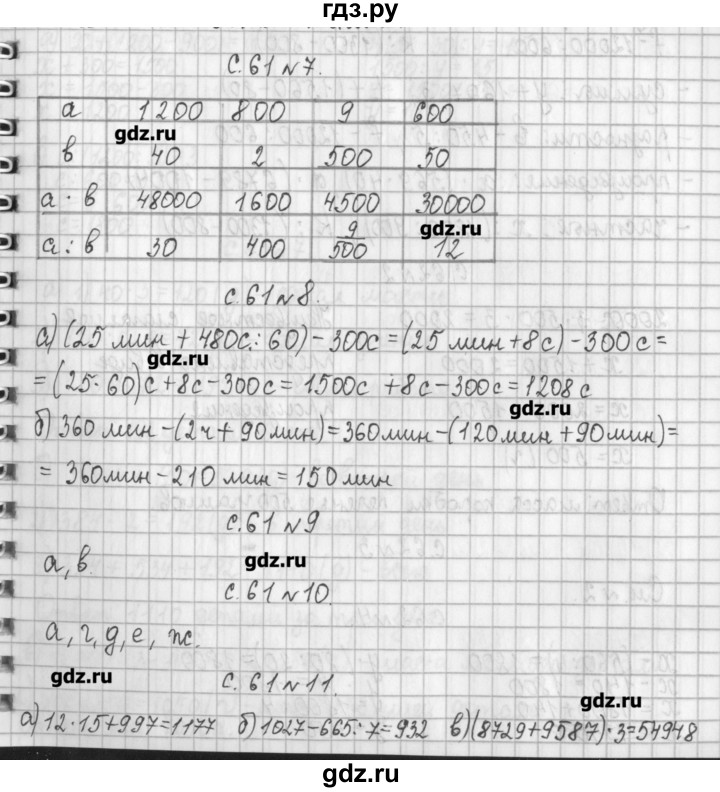 гдз.ру
с.61 №7.
а 1200 800 9 600
gdz.ru
в 40 2 500 50
а · в 48000 1600 4500 30000
gdz.ru
а : в 30 400 9/500 12
с.61 №8.
а) (25 мин + 480с : 60) - 300с = (25 мин + 8с) - 300с =
gdz.ru
= (25 · 60)с + 8с - 300с = 1500с + 8с - 300с = 1208с
gdz.ru
б) 360 мин - (2ч + 90мин) = 360мин - (120мин + 90мин) =
= 360мин - 210 мин = 150мин
с.61 №9
gdz.ru
а, в.
с.61 №10.
а, г, д, е, ж.
gdz.ru
с.61 №11.
gdz.ru
а) 12 · 15 + 997 = 1177 б) 1027 - 665 : 7 = 932 в) (8729 + 9587) · 3 = 54948
gdz.ru